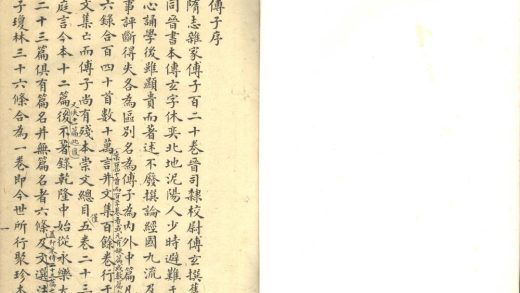 傅子序
隋志雜家傅子百二十卷晉司隸校尉傅玄撰舊
同晉書本傳玄字休奕北地泥陽人少時避難于
心誦學後雖顯貴而著述不廢撰論經國九流及
事評斷得失各為區別名為傅子為內外中篇凡
六錄合百四十首數十萬言并文集百餘卷行于
文集亡而傅子尚有殘本崇文總目五卷二十三
庭言今本十二篇後不著錄乾隆中始從永樂大
二十三篇俱有篇名并無篇名者六條及文選注
子瓊林三十六條合為一卷即今世所行聚珍本